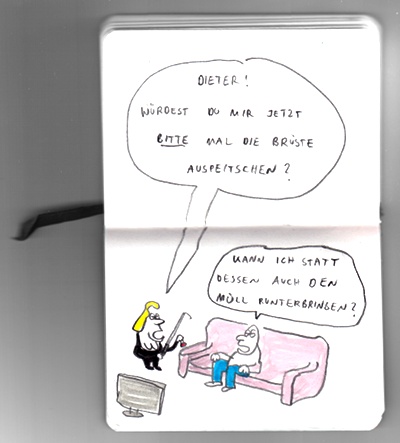 DIETER!
WÜRDEST DU MIR JETZT
BITTE MAL DIE BRÜSTE
AUSPEITSCHEN?
KANN ICH STATT
DESSEN AUCH DEN
MÜLL RUNTERBRINGEN?